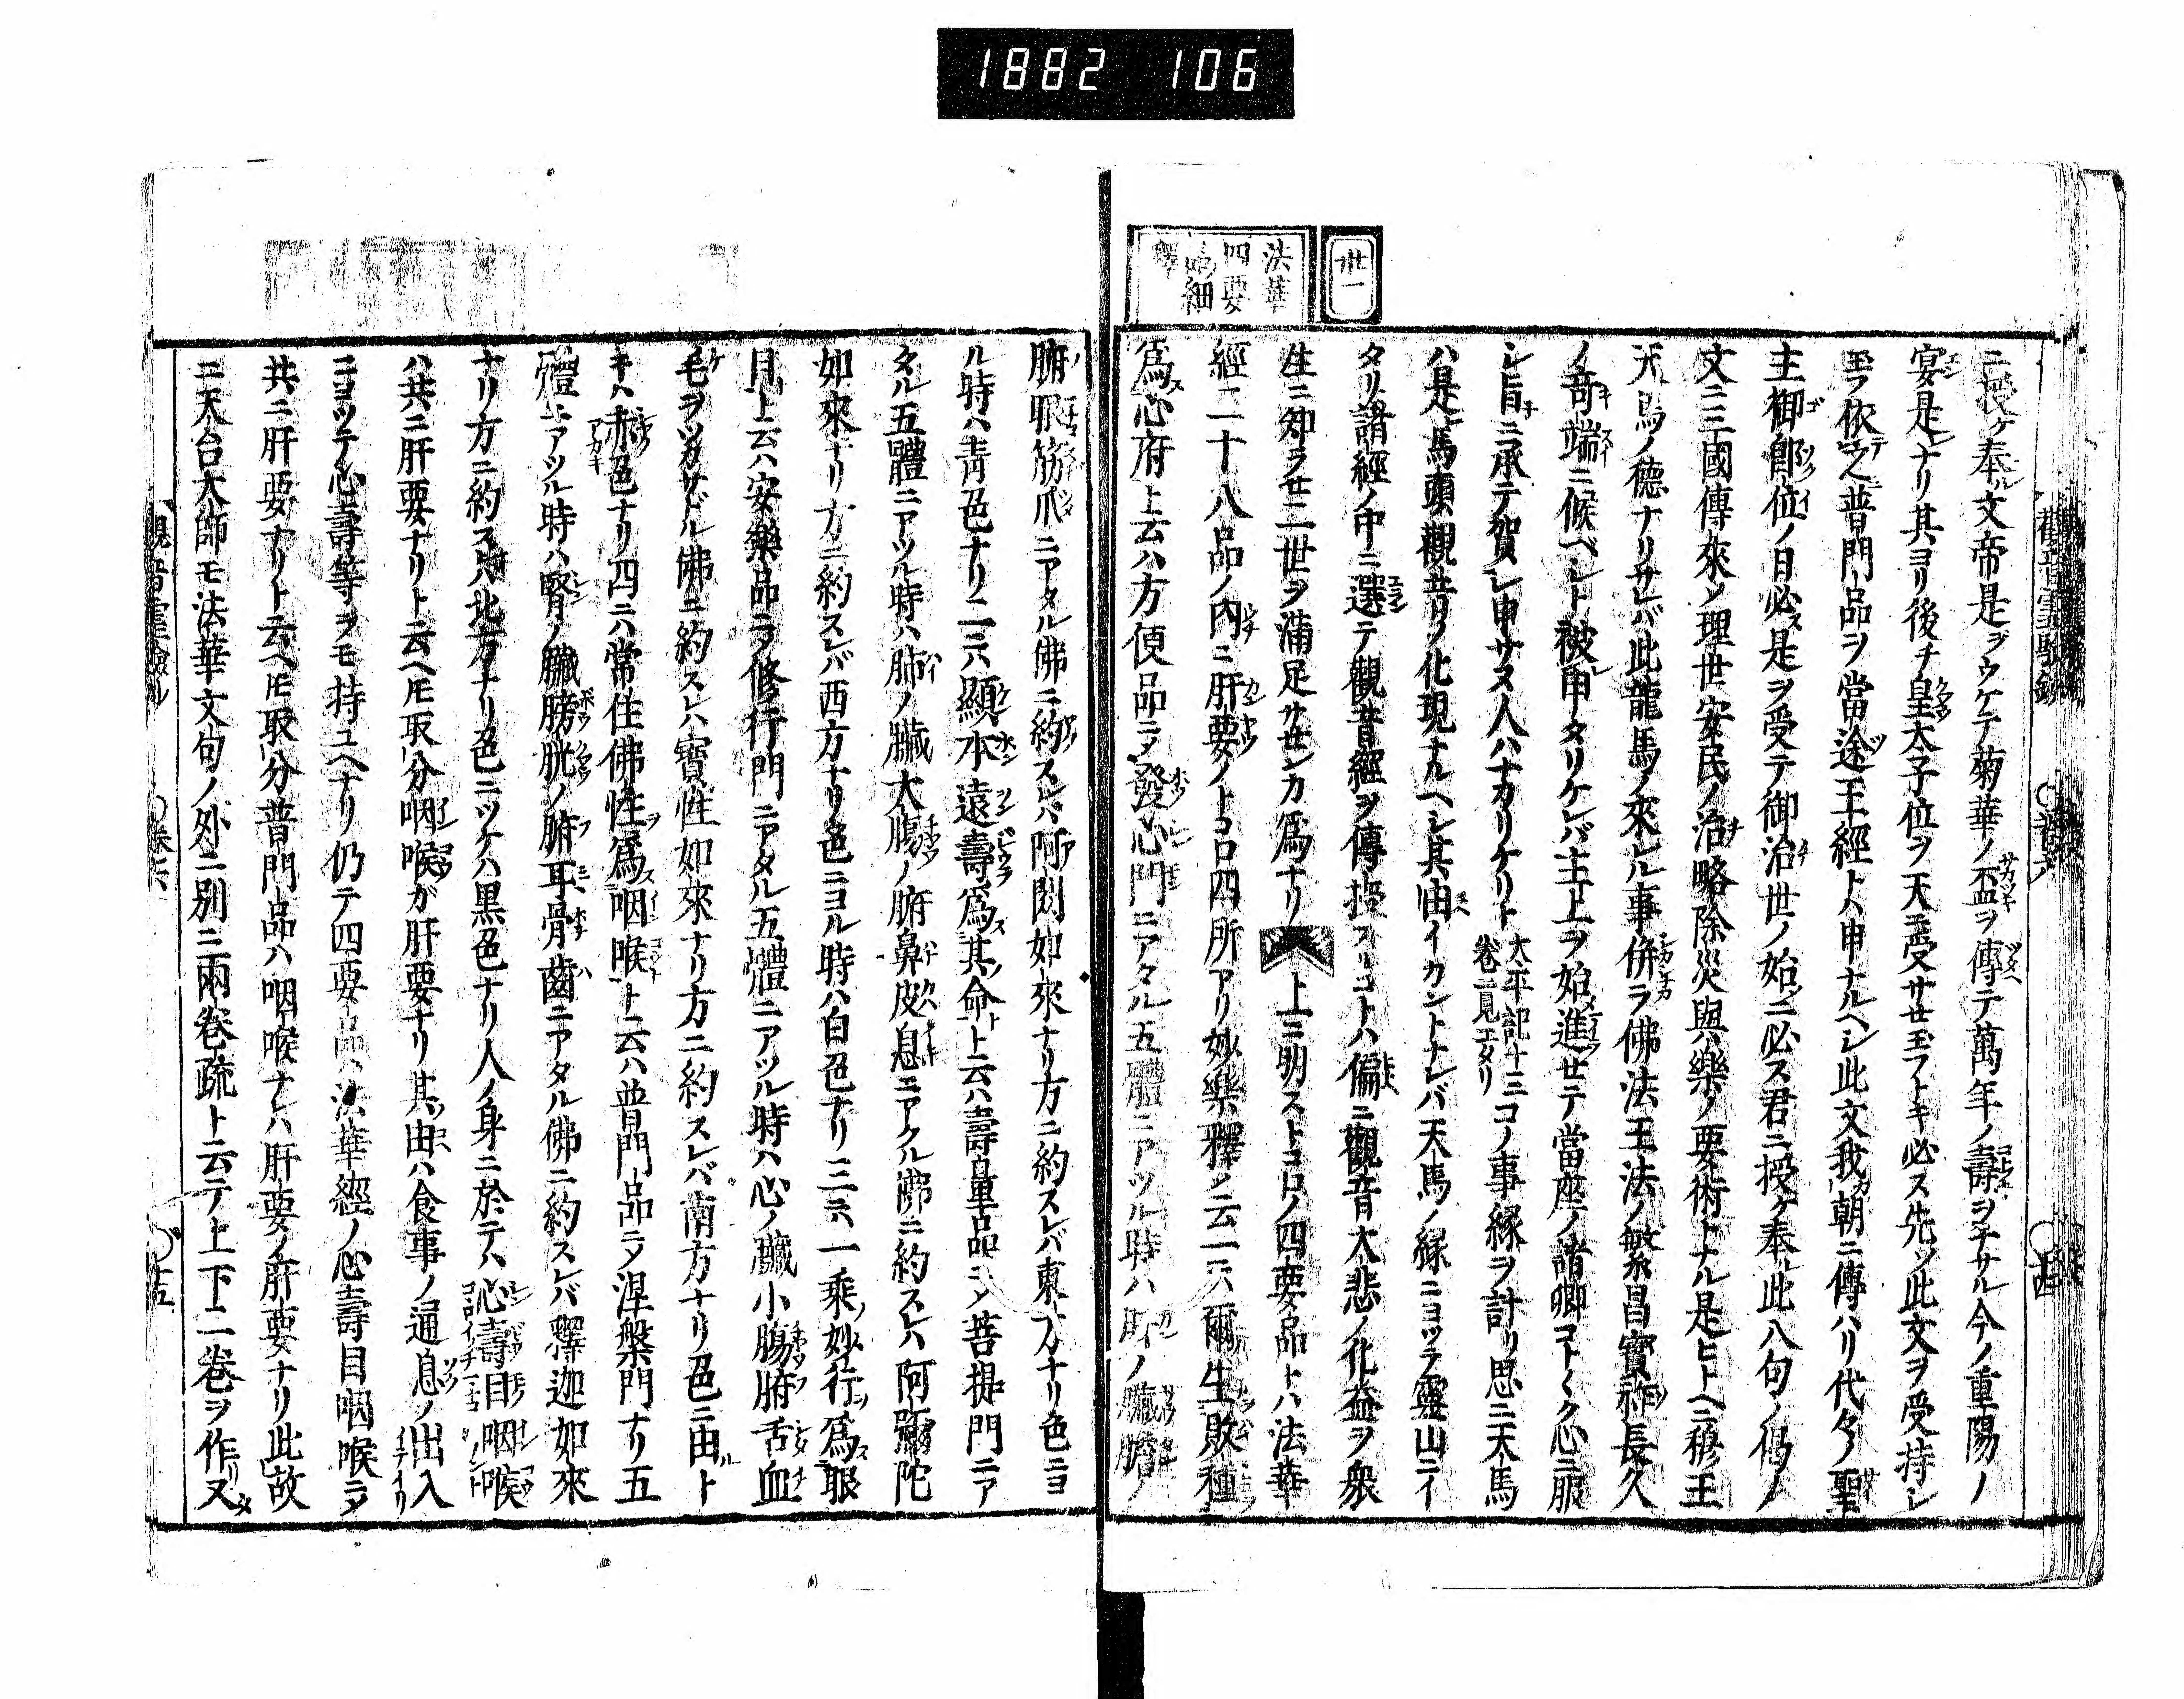 1882 106
廿一
法華
四要
釋
ニ授ケ奉ル文帝是ヲウケテ菊華ノ盃ヲ傳テ萬年ノ壽ヲナサル今ノ重陽ノ
宴是ナリ其ヨリ後チ皇太子位ヲ天ニ受サセ玉フトキ必ス先ツ此文ヲ受持シ
玉フ依之普門品ヲ當途王經トハ申ナルヘシ此文我朝ニ傳ハリ代々ノ聖
主御郎位ノ日必ス是ヲ受テ御治世ノ始ニ必ス君ニ授ケ奉ル此八句ノ偈ノ
文ニ三國傳來シ理世安民ノ治略除災與樂ノ要術トナル是ヒトヘニ穆王
天馬ノ德ナリサレバ此龍馬ノ來レル事併ラ佛法王法ノ繁昌寶祚長久
ノ奇端ニ候ベシト被申タリケレバ主上ヲ始進セテ當座ノ諸卿コト〱ク心ニ服
シ旨ニ承テ賀シ申サヌ人ハナカリケリト 太平記十三卷ニ見エタリ コノ事縁ヲ計リ思ニ天馬
ハ是馬頭觀音ノ化現ナルヘシ其由イカントナレバ天馬ノ縁ニヨツテ靈山ニイ
タリ諸經ノ中ニ選テ觀音經ヲ傳授スルコトハ偏ニ觀音大悲ノ化益ヲ衆
生ニ知ラセ二世ヲ滿足サセンカ爲ナリ 上ニ明ストコロノ四要品トハ法華
經二十八品ノ内ニ肝要ノトコロ四所アリ妙樂釋ノ云一ニハ爾生敗種
爲心府上云ハ方便品ニテ發心門ニアタル五體ニアツル時ハ肝ノ臟膽ノ
腑眼筋爪ニアタル佛ニ約スレバ阿閦如來ナリ方ニ約スレバ東方ナリ色ニヨ
ル時ハ青色ナリ二ニハ顯本遠壽爲其命ト云ハ壽量品ニテ菩提門ニア
タル五體ニアツル時ハ肺ノ臟大腸ノ腑鼻皮息ニアタル佛ニ約スレハ阿彌陀
如來ナリ方ニ約スレバ西方ナリ色ニヨル時ハ白色ナリ三ニハ一乘妙行爲眼
目上云ハ安樂品ニテ修行門ニアタル五體ニアツル時ハ心ノ臟小腸腑舌血
毛ヲツカサドル佛ニ約スレハ寶性如來ナリ方ニ約スレバ南方ナリ色ニ由ト
キハ赤色ナリ四ニハ常住佛性爲咽喉ト云ハ普門品ニテ涅槃門ナリ五
體ニアツル時ハ腎ノ臟膀胱ノ腑耳骨齒ニアタル佛ニ約スレバ釋迦如來
ナリ方ニ約スレバ北方ナリ色ニツケハ黒色ナリ人ノ身ニ於テハ心壽目咽喉
ハ共ニ肝要ナリト云ヘトモ取分咽喉ガ肝要ナリ其由ハ食事ノ通息ノ出入
ニヨツテ心壽等ヲモ持ユヘナリ仍テ四要品ハ法華經ノ心壽目咽喉ニテ
共ニ肝要ナリト云ヘトモ取分普門品ハ咽喉ナレハ肝要ノ肝要ナリ此故
ニ天台大師モ法華文句ノ外ニ別ニ兩卷疏ト云テ上下二卷ヲ作リ又